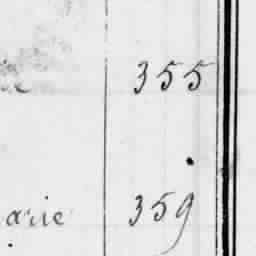 355
arie 359